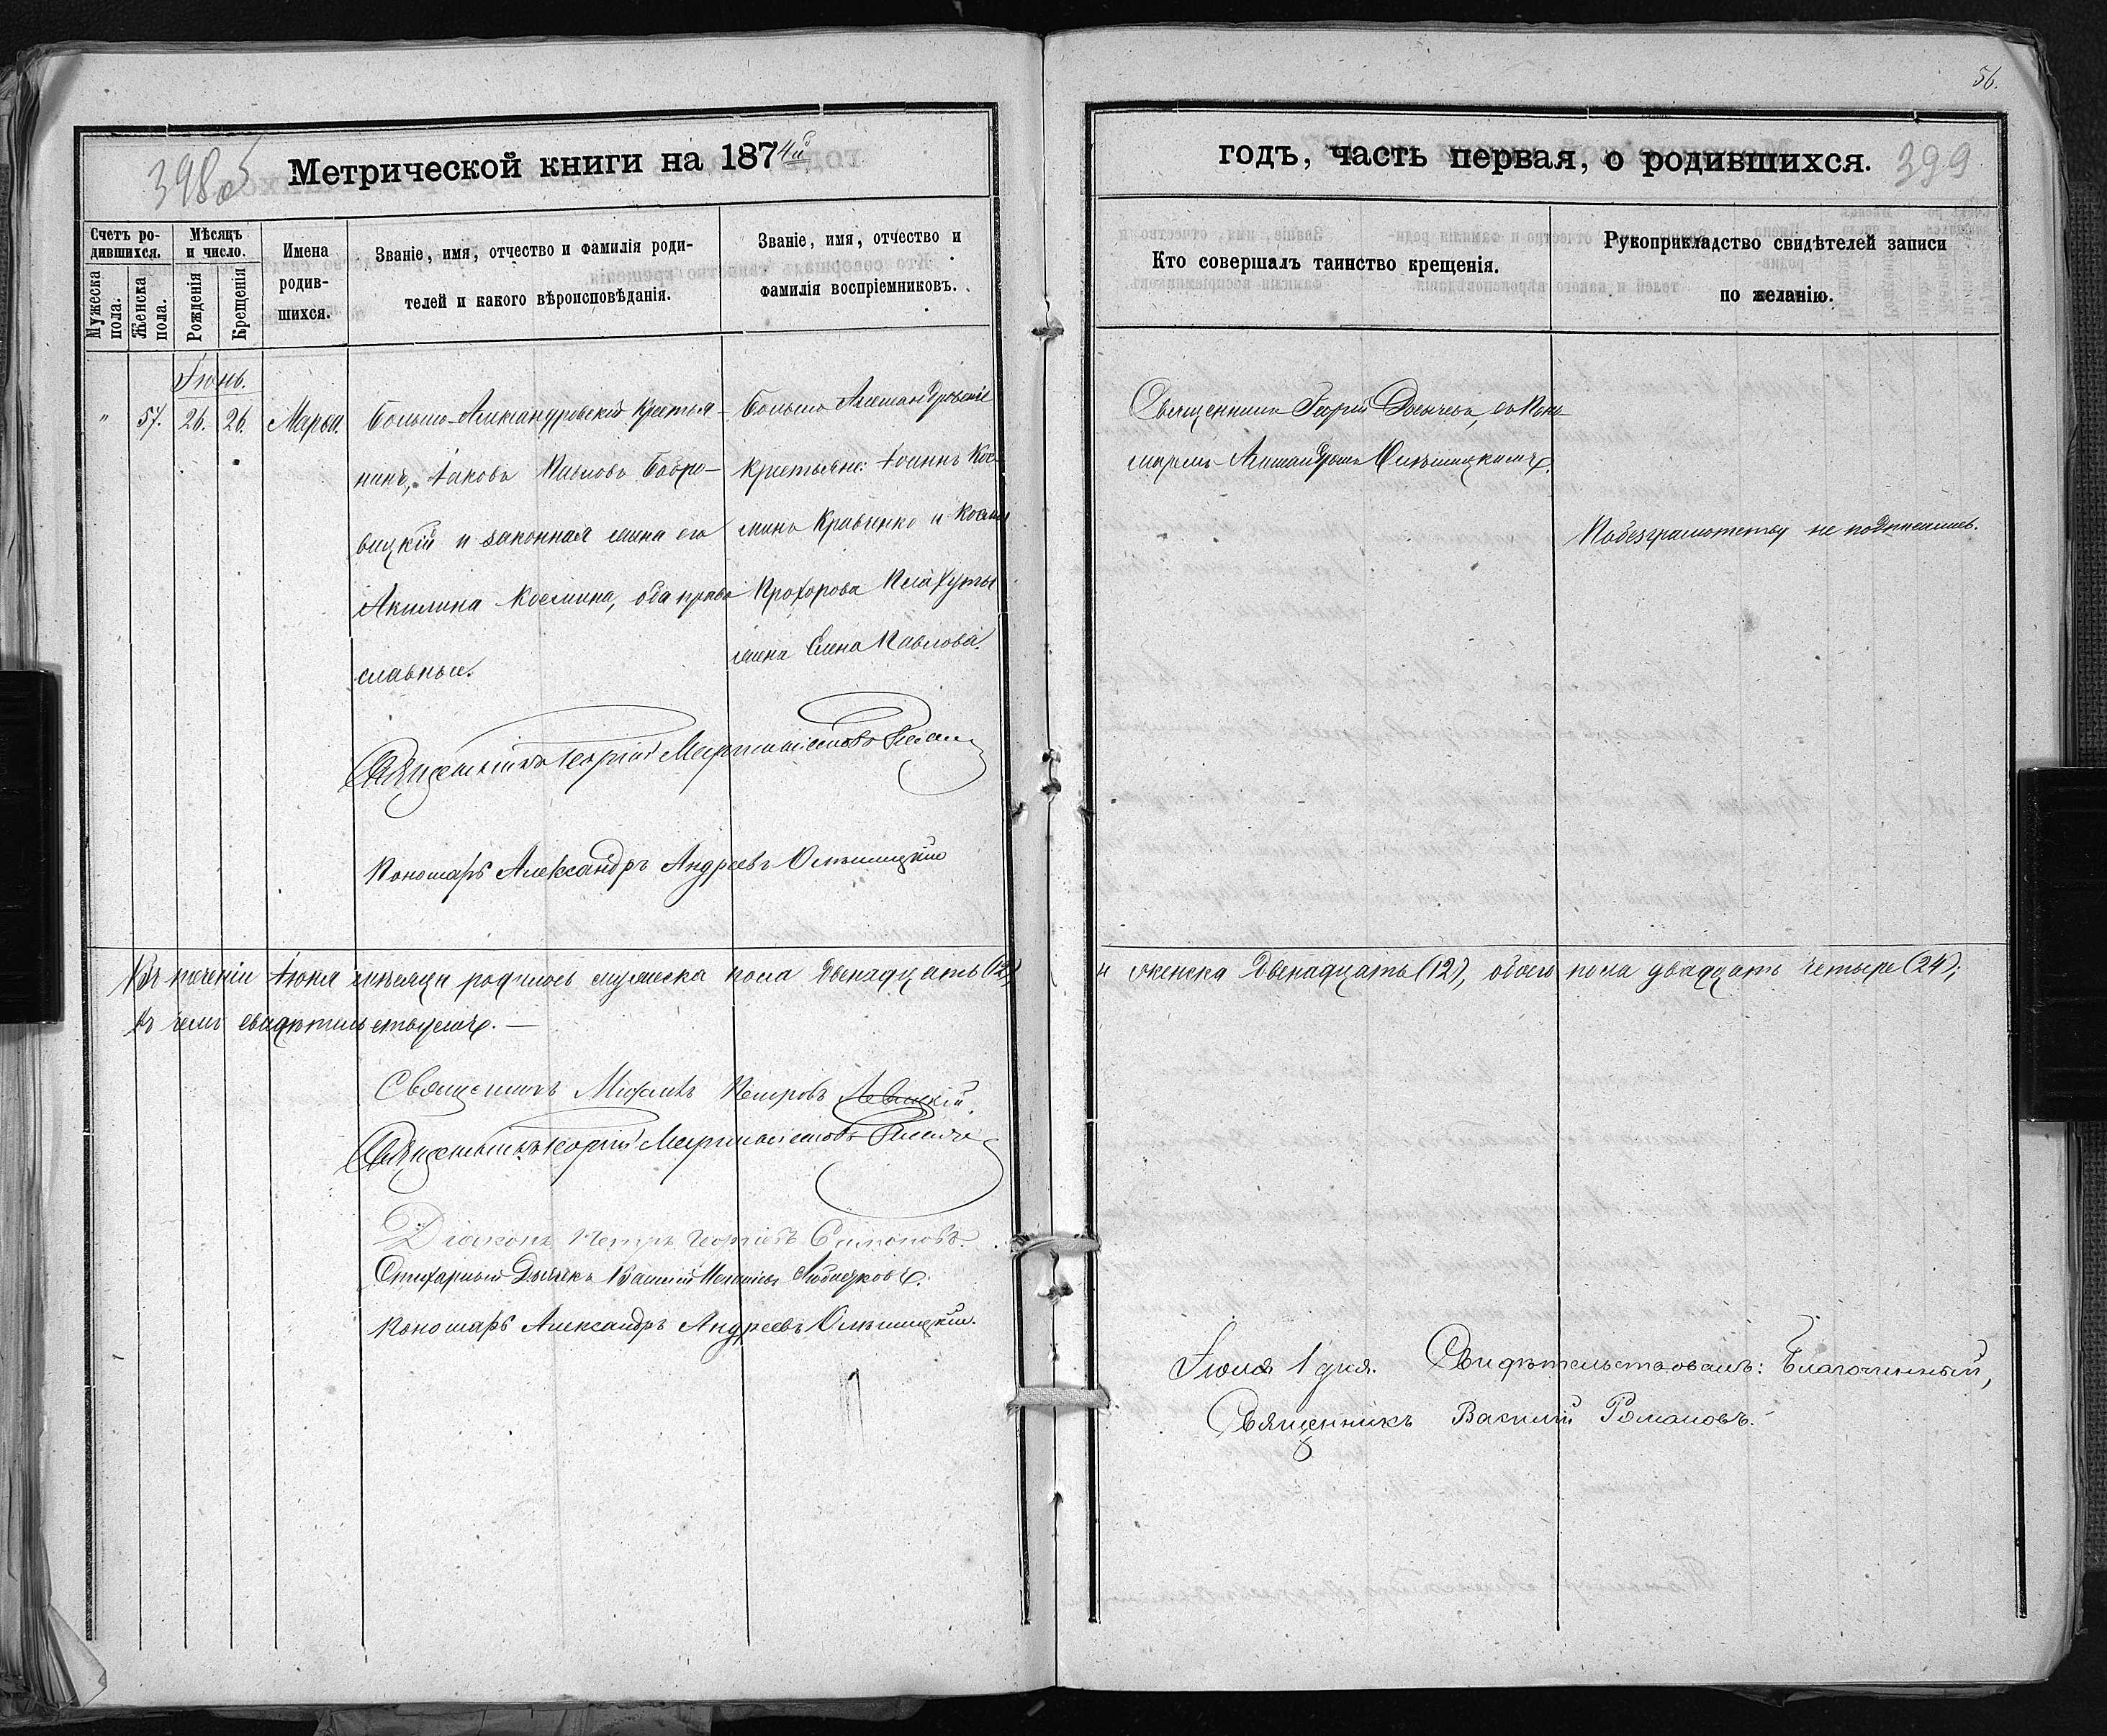 56.
398об
Метрической книги на 1874й
годъ, часть первая, о родившихся. 399
Счетъ родившихся.
Мужеска пола.
Женска пола.
Мѣсяцъ и число.
Рожденія
Крещенія
Имена
родив-
шихся.
Званіе, имя, отчество и фамилія роди-
телей и какого вѣроисповѣданія.
Званіе, имя, отчество и
фамилія воспріемниковъ.
Кто совершалъ таинство крещенія.
Рукоприкладство свидѣтелей записи
по желанію.
Іюнь.
" 57. 26. 26. Марѳа.
Больше-Александровскій крестья-
нинъ, Іаковъ Павловъ Бобро-
вицкій и законная жена его
Акилина Космина, оба право
славные.
Больше Александровскіе
крестьяне: Іоаннъ Кос-
минъ Кравченко и
Прохорова
жена Елена Павлова.
Священникъ Георгій съ Поно-
маремъ Александромъ
По безграмотству не подписались.
Священникъ Георгій
Пономарь Александръ Андреевъ
Въ теченіи Іюня мѣсяца родилось мужеска пола двенадцать (12),
и женска двенадцать (12), обоего пола двадцать четыре (24);
въ чемъ свидѣтельствуемъ. —
Священникъ Михаилъ Петровъ Левицкій.
Священникъ Георгій
Діаконъ Петръ Георгіевъ Симоновъ.
Стихарный Дьячекъ Василій
Пономарь Александръ Андреевъ
Іюля 1 дня. Свидѣтельствовалъ: Благочинный,
Священникъ Василій Романовъ.